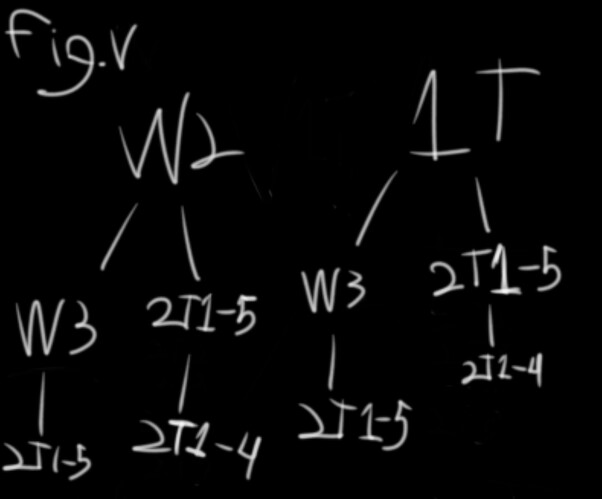 Fig.V
W2 1T
W3 2T1-5 W3 2T1-5
2T1-5 2T1-4 2T1-5 2T1-4